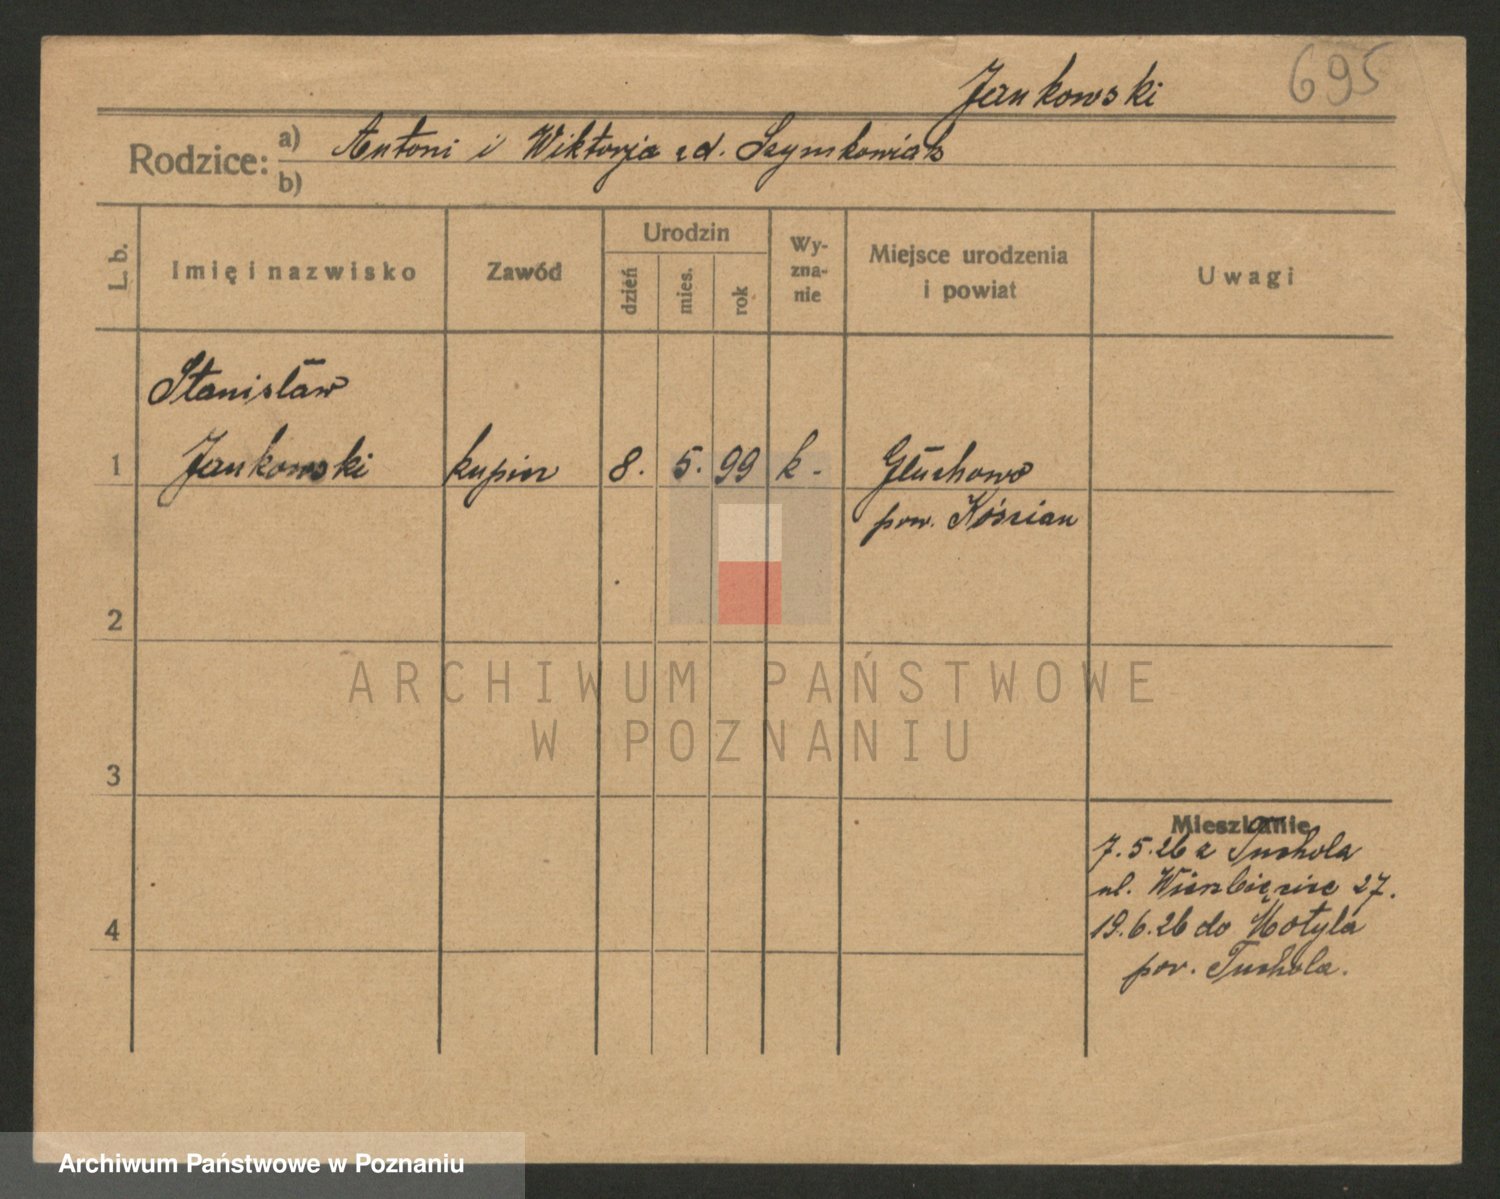 695
Jankowski
Rodzice: a) Antoni i Wiktorja z d. Szymkowiak
b)
L. b. Imię i nazwisko Zawód Urodzin dzień mies. rok Wy-zna-nie Miejsce urodzenia i powiat Uwagi
Stanisław
1 Jankowski kupiec 8. 5. 99 k. Głuchowo
pow. Kościan
2
ARCHIWUM PAŃSTWOWE
W POZNANIU
3
Mieszkanie
7.5.26 z Tuchola
ul. Wierzbięcice 27.
4 19.6.26 do Motyla
pow. Tuchola.
Archiwum Państwowe w Poznaniu